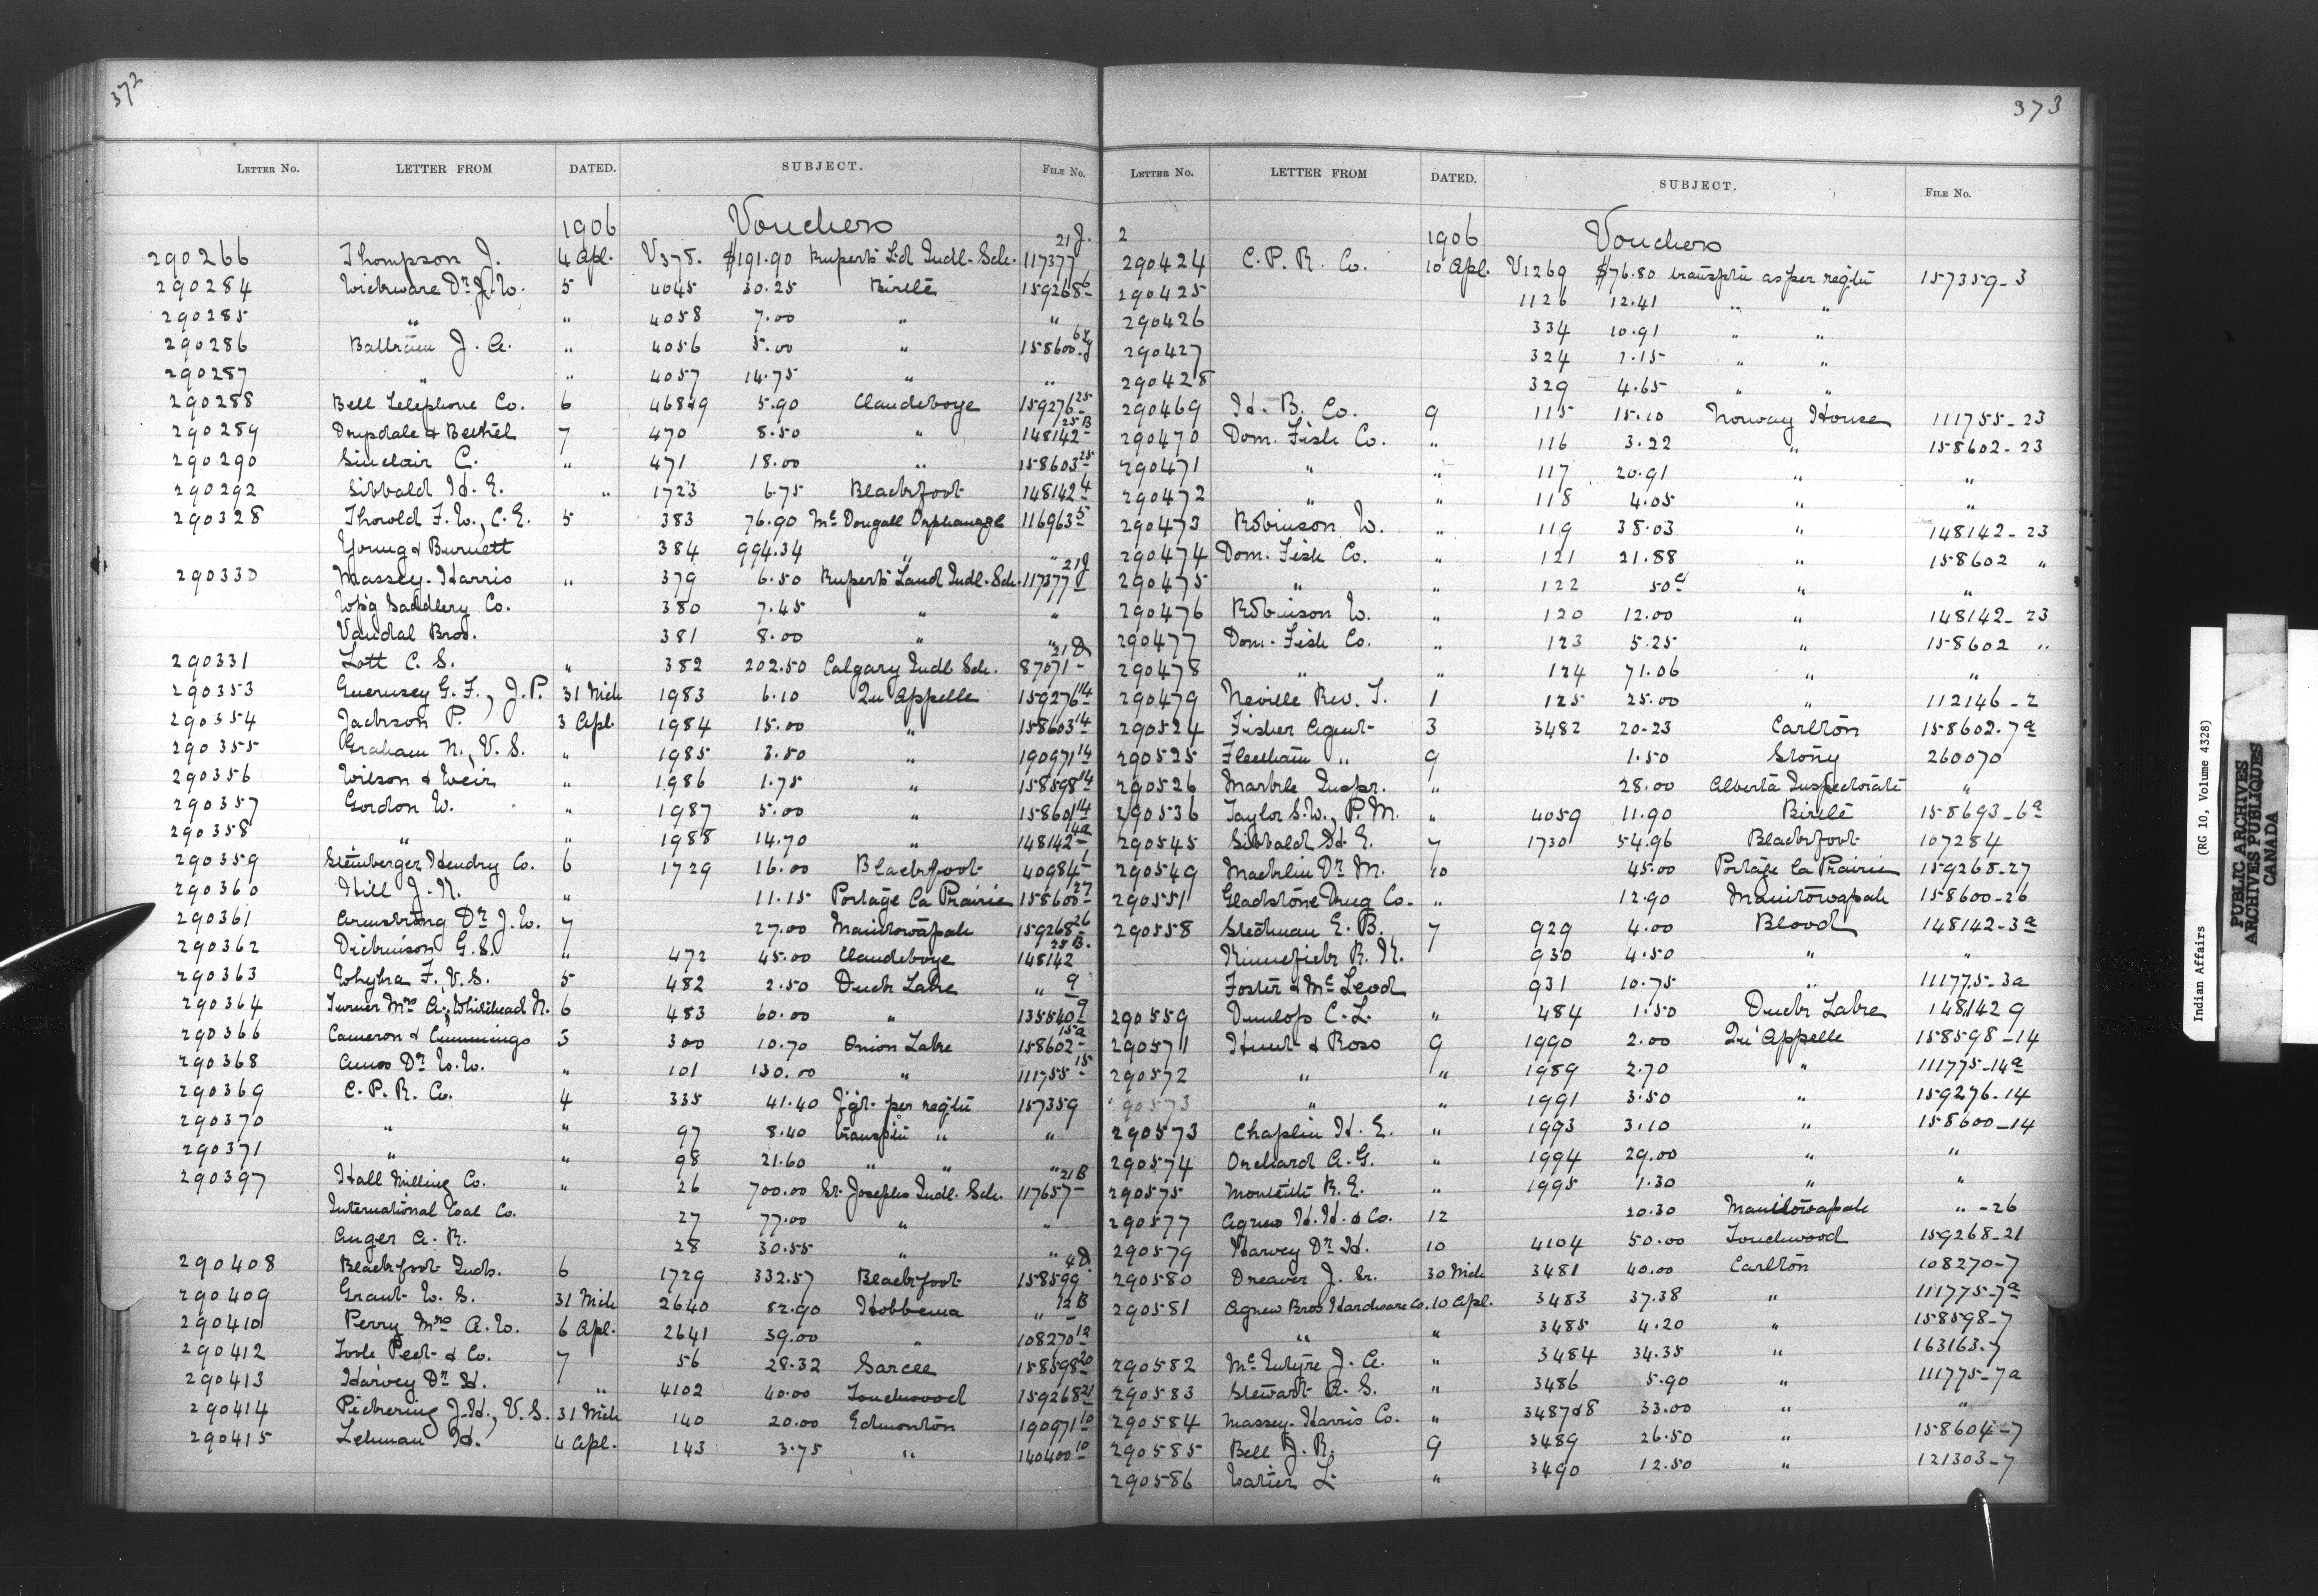 372
LETTER NO. LETTER FROM DATED. SUBJECT. FILE NO.
1906 Vouchers
290266 Thompson J. 4 Apl. V378. $191.90 Rupert's Ld Indl. Sch. 117377 21J.
290284 Wickware Dr. J. W. 5 4045 30.25 Birtle 159268-6
290285 " " 4058 7.00 " "
290286 J. A. " 4056 5.00 " 158600-6
290287 " " 4057 14.75 " "
290288 Bell Telephone Co. 6 468&9 5.90 Clandeboye 159276-25
290289 Drysdale & Bethel 7 470 8.50 " 148142-25B
290290 Sinclair C. " 471 18.00 " 158603-25
290292 Sibbald H. E. " 1723 6.75 Blackfoot 148142-4
290328 Thorold F. W., C. E. 5 383 76.90 Mc Dougall Orphanage 116963-5
Young & Burnett 384 994.34 " "
290330 Massey-Harris " 379 6.50 Rupert's Land Indl. Sch. 117377-21J
Wp'g Saddlery Co. 380 7.45 " "
Vandal Bros. 381 8.00 " "
290331 Lott C. S. " 382 202.50 Calgary Indl. Sch. 87071-21D
290353 Guernsey G. F., J. P. 31 Mch 1983 6.10 Qu'Appelle 159276-14
290354 Jackson P. 3 Apl. 1984 15.00 " 158603-14
290355 Graham N., V. S. " 1985 3.50 " 190971-14
290356 Wilson & Weir " 1986 1.75 " 158598-14
290357 Gordon W. " 1987 5.00 " 158601-14
290358 " " 1988 14.70 " 148142-14a
290359 Steinberger Hendry Co. 6 1729 16.00 Blackfoot 40984-1
290360 Hill J. N. " 11.15 Portage La Prairie 158600-27
290361 Armstrong Dr. J. W. 7 27.00 Manitowapah 159268-26
290362 Dickinson G. S. " 472 45.00 Clandeboye 148142 25B.
290363 Whybra F. V. S. 5 482 2.50 Duck Lake " 9
290364 Turner Mrs A., Whitehead N. 6 483 60.00 " 135540-9
290366 Cameron & Cummings 3 300 10.70 Onion Lake 158602-15a
290368 Amos Dr. W. W. " 101 130.00 " 111755-15
290369 C. P. R. Co. 4 335 41.40 f'gt. per reg'tn 157359
290370 " " 97 8.40 transptn " "
290371 " " 98 21.60 " " "
290397 Hall Milling Co. " 26 700.00 St. Josephs Indl. Sch. 117657-21B
International Coal Co. 27 77.00 " "
Auger A. R. 28 30.55 " "
290408 Blackfoot Inds. 6 1729 332.57 Blackfoot 158599 4D.
290409 Grant W. S. 31 Mch 2640 82.90 Hobbema " 12B
290410 Perry Mrs A. W. 6 Apl. 2641 39.00 " 108270-12
290412 Toole Peet & Co. 7 56 28.32 Sarcee 158598-20
290413 Harvey Dr. H. " 4102 40.00 Touchwood 159268-21
290414 Pickering J. H., V. S. 31 Mch 140 20.00 Edmonton 190971-10
290415 Lehman H. 4 Apl. 143 3.75 " 140400-10
373
LETTER NO. LETTER FROM DATED. SUBJECT. FILE NO.
2 1906 Vouchers
290424 C. P. R. Co. 10 Apl. V1269 $76.80 transptn as per reg'tn 157359-3
290425 1126 12.41 " "
290426 334 10.91 " "
290427 324 7.15 " "
290428 329 4.65 " "
290469 H. B. Co. 9 115 15.10 Norway House 111755-23
290470 Dom. Fish Co. " 116 3.22 " 158602-23
290471 " " 117 20.91 " "
290472 " " 118 4.05 " "
290473 Robinson W. " 119 38.03 " 148142-23
290474 Dom. Fish Co. " 121 21.88 " 158602 "
290475 " " 122 50c " "
290476 Robinson W. " 120 12.00 " 148142-23
290477 Dom. Fish Co. " 123 5.25 " 158602 "
290478 " " 124 71.06 " "
290479 Neville Rev. T. 1 125 25.00 " 112146-2
290524 Fisher Agent 3 3482 20.23 Carlton 158602-7a
290525 Fleetham " 9 1.50 Stony 260070
290526 Markle Inspr. " 28.00 Alberta Inspectorate "
290536 Taylor S. W., P. M. " 4059 11.90 Birtle 158693-6a
290545 Sibbald H. E. 7 1730 54.96 Blackfoot 107284
290549 Macklin Dr. M. 10 45.00 Portage La Prairie 159268-27
290551 Gladstone Drug Co. " 12.90 Manitowapah 158600-26
290558 Stedman E. B. 7 929 4.00 Blood 148142-3a
Kinnefick R. N. 930 4.50 " "
Foster & McLeod 931 10.75 " 111775-3a
290559 Dunlop C. L. " 484 1.50 Duck Lake 148142 9
290571 Hunt & Ross 9 1990 2.00 Qu'Appelle 158598-14
290572 " " 1989 2.70 " 111775-14a
90573 " " 1991 3.50 " 159276-14
290573 Chaplin H. E. " 1993 3.10 " 158600-14
290574 Orchard A. G. " 1994 29.00 " "
290575 Monteith R. E. " 1995 1.30 " "
290577 Agnew H. H. & Co. 12 20.30 Manitowapah " -26
290579 Harvey Dr. H. 10 4104 50.00 Touchwood 159268-21
290580 Dreaver J. Sr. 30 Mch 3481 40.00 Carlton 108270-7
290581 Agnew Bros Hardware Co. 10 Apl. 3483 37.38 " 111775-7a
" " 3485 4.20 " 158598-7
290582 McIntyre J. A. " 3484 34.35 " 163163-7
290583 Stewart A. S. " 3486 5.90 " 111775-7a
290584 Massey-Harris Co. " 3487&8 33.00 " "
290585 Bell J. R. 9 3489 26.50 " 158604-7
290586 L. " 3490 12.50 " 121303-7
Indian Affairs (RG 10, Volume 4328)
PUBLIC ARCHIVES
ARCHIVES PUBLIQUES
CANADA